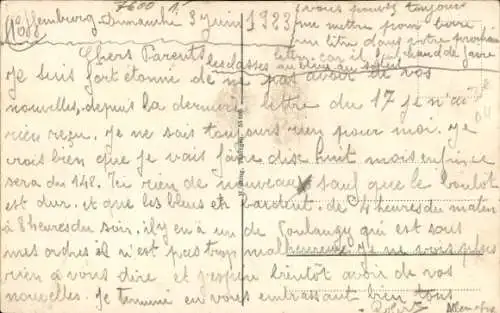 7600 1.
Offemburg Dimanche 3 Juin 1923
vous pouvez toujours
me mettre pour
un litre dans votre prochaine
lettre car il fait chaud de faire
les classes au bleus au soleil
Chers Parents
Je suis fort étonné de ne pas avoir de vos
nouvelles, depuis la dernière lettre du 17 je n'ai
rien reçu. Je ne sais toujours rien pour moi. Je
crois bien que je vais faire dix huit mois enfin ce
sera du 148. Ici rien de nouveau sauf que le boulot
est dur. et que les bleus en bardent. de 4 heures du matin
à 8 heures du soir. il y en à un de Coulanges qui est sous
mes ordres il n'est pas trop malheureux. Je ne vois plus
rien à vous dire et j'espère bientôt avoir de vos
nouvelles. Je termine en vous embrassant bien tous
Robert